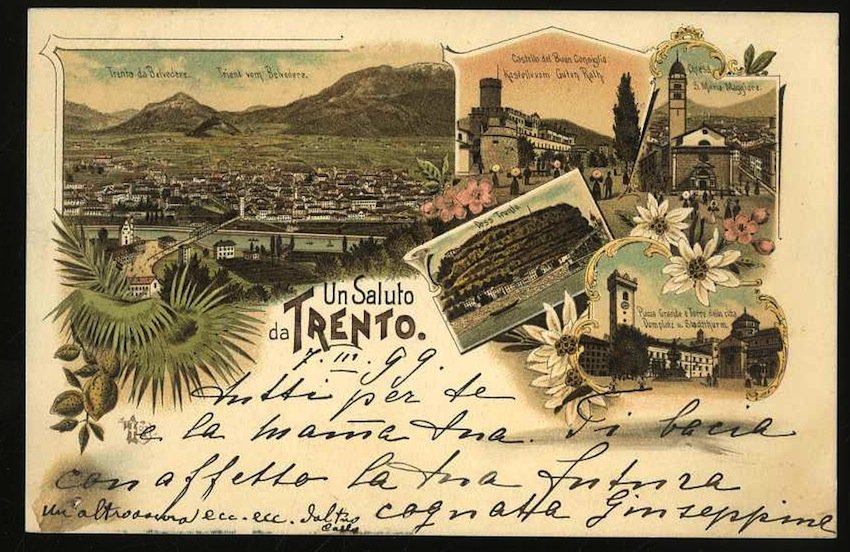 Trento da Belvedere. Trient vom Belvedere.
Castello del Buon Consiglio
Kastell vom Guten Rath.
Chiesa
S. Maria Maggiore.
Doss Trento
Piazza Grande e Torre della città
Domplatz u. Stadtthurm.
Un Saluto
da TRENTO.
7. III. 99.
tutti per te
e la mamma tua. Ti bacia
con affetto la tua futura
cognata Giuseppina
ecc. ecc.